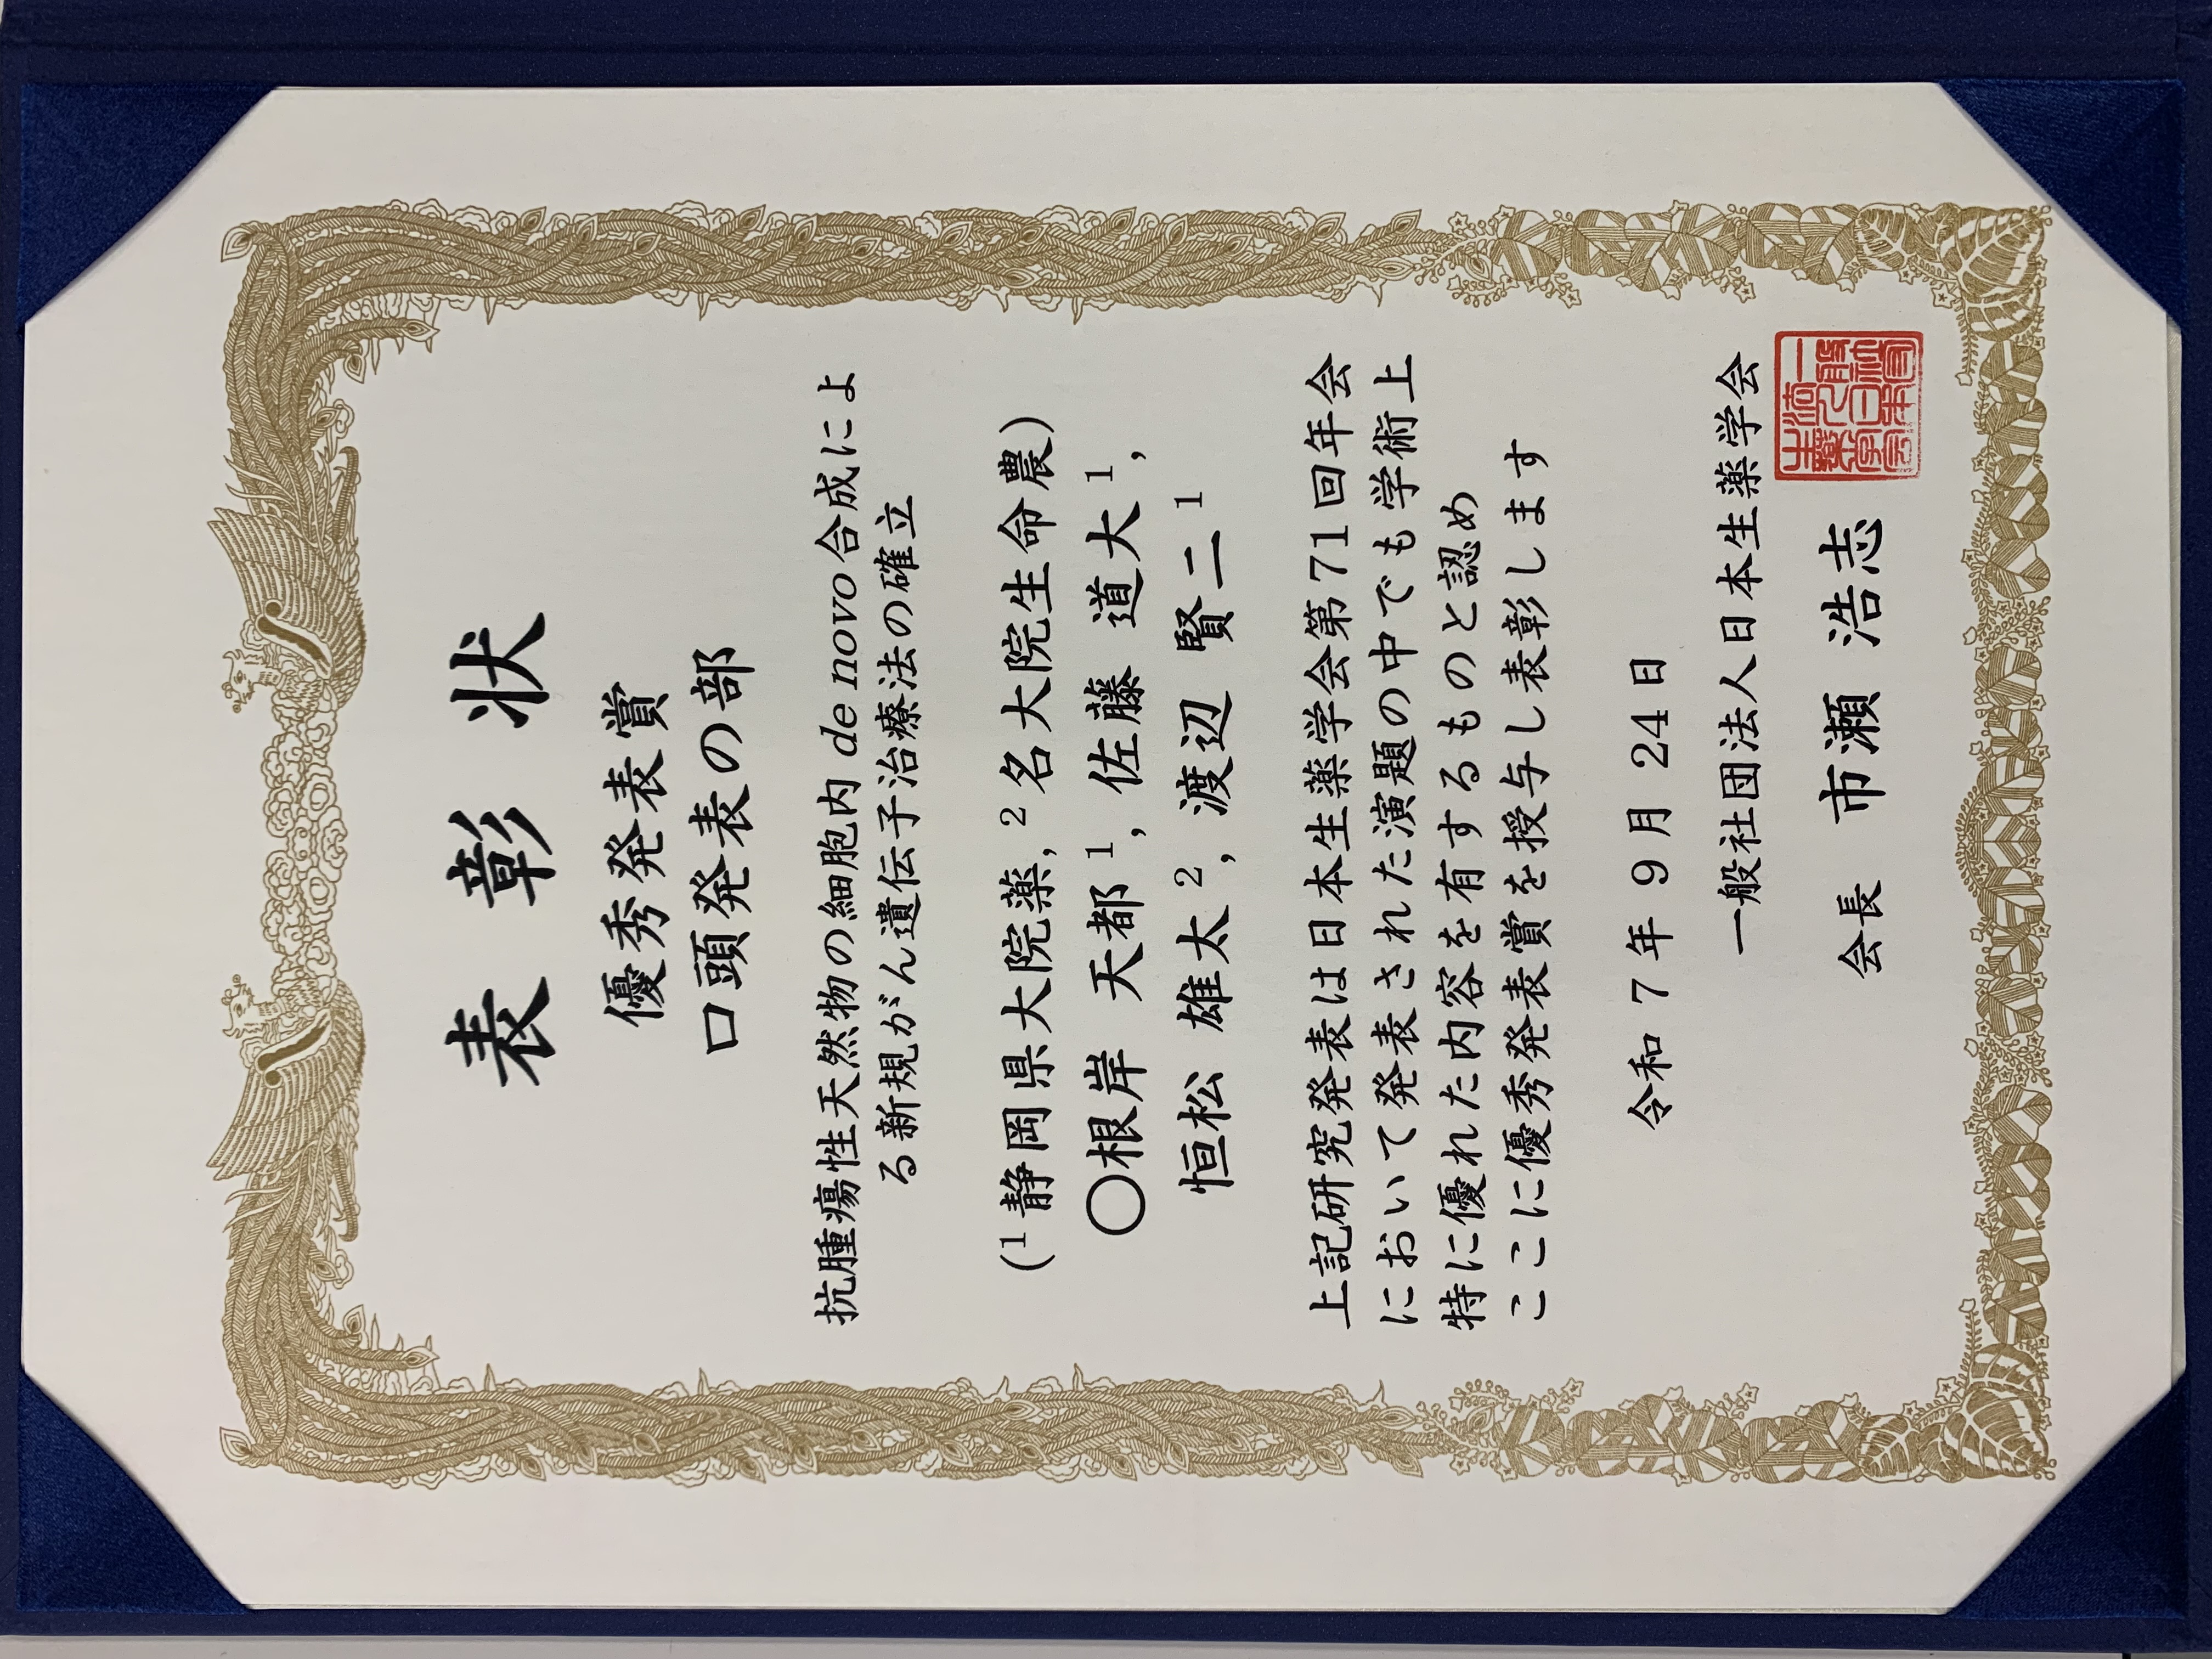 表彰状
優秀発表賞
口頭発表の部
抗腫瘍性天然物の細胞内 de novo 合成によ
る新規がん遺伝子治療法の確立
(¹静岡県大院薬, ²名大院生命農)
〇根岸 天都¹, 佐藤 道大¹,
恒松 雄太², 渡辺 賢二¹
上記研究発表は日本生薬学会第71回年会
において発表された演題の中でも学術上
特に優れた内容を有するものと認め
ここに優秀発表賞を授与し表彰します
令和 7 年 9 月 24 日
一般社団法人日本生薬学会
会長 市瀬 浩志